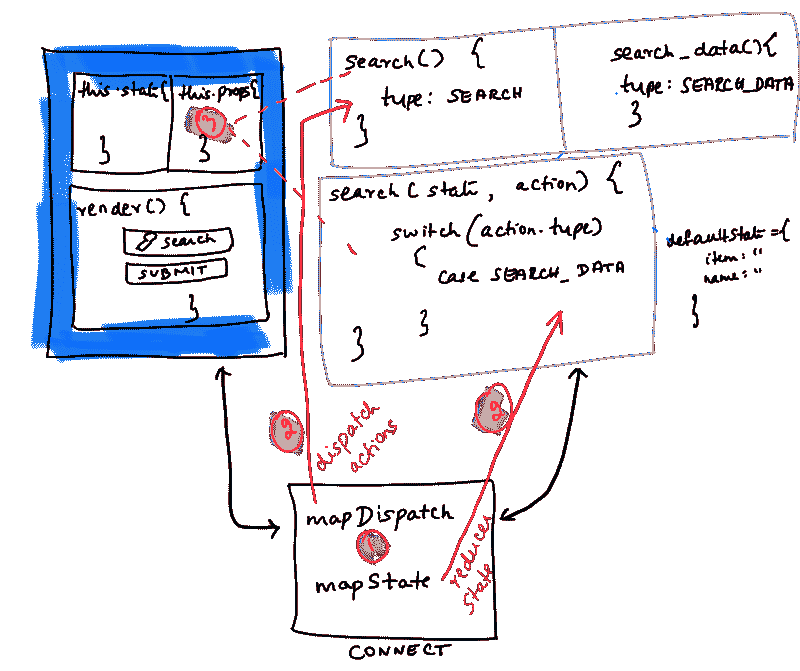 this.state{
}
this.props{
3
}
render() {
search
SUBMIT
}
search() {
type: SEARCH
}
search_data(){
type: SEARCH_DATA
}
search (state, action) {
switch (action.type)
{
case SEARCH_DATA
}
}
defaultState={
item: "
name: "
}
2
dispatch
actions
2
mapDispatch
1
mapState
reducer
state
CONNECT